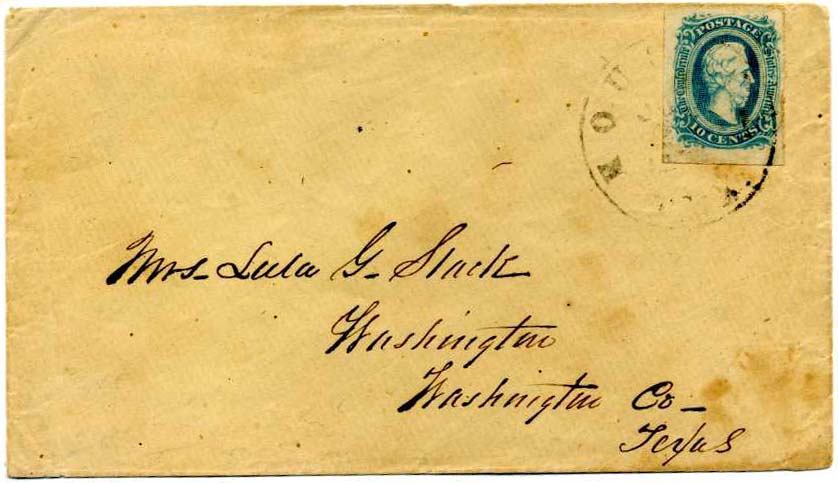 POSTAGE
The Confederate States of America
10 CENTS
HOU
Mrs- Lula G- Slack
Washington
Washington Co-
Texas